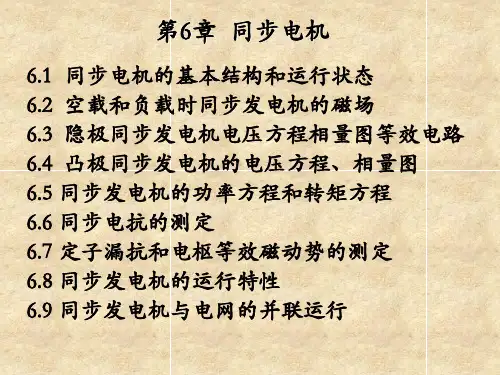 第6章 同步电机
6.1 同步电机的基本结构和运行状态
6.2 空载和负载时同步发电机的磁场
6.3 隐极同步发电机电压方程相量图等效电路
6.4 凸极同步发电机的电压方程、相量图
6.5 同步发电机的功率方程和转矩方程
6.6 同步电抗的测定
6.7 定子漏抗和电枢等效磁动势的测定
6.8 同步发电机的运行特性
6.9 同步发电机与电网的并联运行